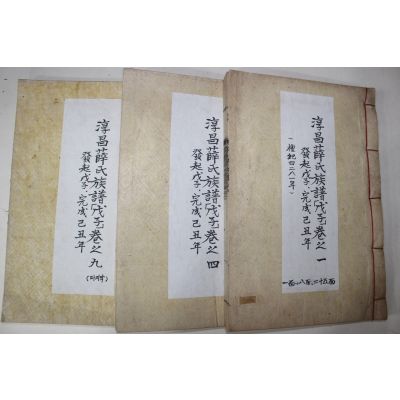 淳昌薛氏族譜(戊子)卷之一
(檀紀四二八一年)
發起戊子、完成己丑年
淳昌薛氏族譜(戊子)卷之四
發起戊子、完成己丑年
淳昌薛氏族譜(戊子)卷之九
發起戊子、完成己丑年